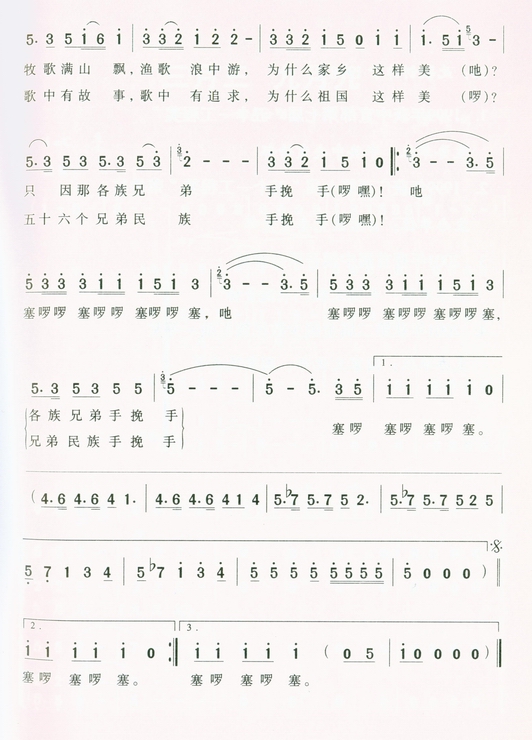 5· 3 5 1 6 1 | 3 3 2 1 2 2 - | 3 3 2 1 5 0 1 1 | 1· 5 1 3 - |
牧歌满山 飘,渔歌 浪中游, 为什么家乡 这样美 (吔)?
歌中有故 事,歌中 有追求, 为什么祖国 这样美 (啰)?
5· 3 5 3 5 3 5 3 | 2 - - - | 3 3 2 1 5 1 0 : 3 - - 3· 5 |
只 因那各族兄 弟 手挽 手(啰嘿)! 吔
五十六个兄弟民 族 手挽 手(啰嘿)!
5 3 3 3 1 1 1 5 1 3 | 3 - - 3· 5 | 5 3 3 3 1 1 1 5 1 3 |
塞啰啰 塞啰啰 塞啰啰塞,吔 塞啰啰 塞啰啰 塞啰啰塞,
5· 3 5 3 5 5 | 5 - - - | 5 - 5· 3 5 | 1. 1 1 1 1 1 0 |
各族兄弟手挽 手
兄弟民族手挽 手
塞啰 塞啰塞啰塞。
( 4· 6 4· 6 4 1· | 4· 6 4· 6 4 1 4 | 5· ♭7 5· 7 5 2· | 5· ♭7 5· 7 5 2 5 |
5 7 1 3 4 | 5 ♭7 1 3 4 | 5 5 5 5 5 5 5 5 | 5 0 0 0 )
2. 1 1 1 1 1 0 : 3. 1 1 1 1 1 ( 0 5 | 1 0 0 0 0 )
塞啰 塞啰塞。 塞啰 塞啰塞。